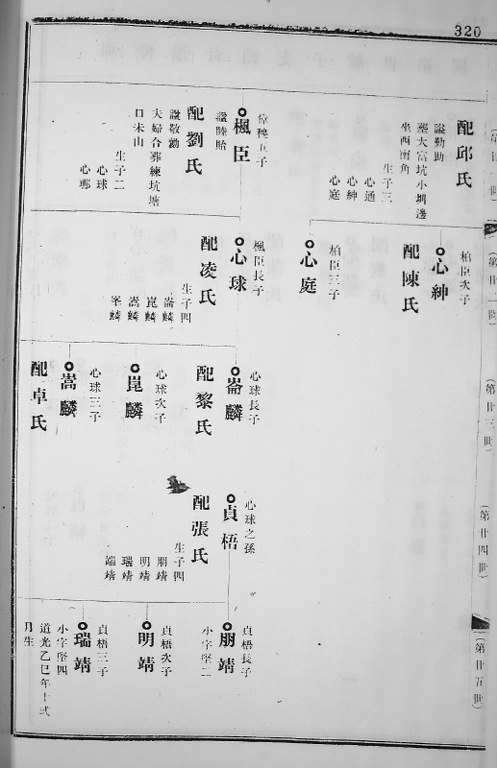 320
(第廿一世)
(第廿二世)
(第廿三世)
(第廿四世)
(第廿五世)
配邱氏
諡勤助
塟大富坑小圳邊
坐酉兩角
生子三
心通
心紳
心庭
楓臣
諡睦貽
配劉氏
諡敬勤
夫婦合葬練坑塘
口未山
生子二
心球
心郷
柏臣次子
心紳
配陳氏
柏臣三子
心庭
楓臣長子
心球
配凌氏
生子四
崙麟
崑麟
嵩麟
峯麟
心球長子
崙麟
配黎氏
心球次子
崑麟
心球三子
嵩麟
配卓氏
心球之孫
貞梧
配張氏
生子四
朋靖
明靖
瑞靖
端靖
貞梧長子
朋靖
小字堅二
貞梧次子
明靖
貞梧三子
瑞靖
小字堅四
道光乙巳年十弍
月生